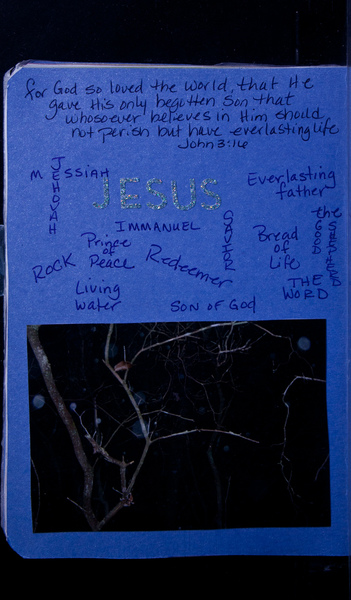 for God so loved the world, that He
gave His only begotten Son that
whosoever believes in Him should
not perish but have everlasting life
John 3:16
MESSIAH
JEHOVAH
JESUS
Everlasting
father
IMMANUEL
SAVIOR
the
GOOD
SHEPHERD
Prince
of
Peace
Bread
of
Life
ROCK
Redeemer
Living
Water
THE
WORD
SON OF GOD